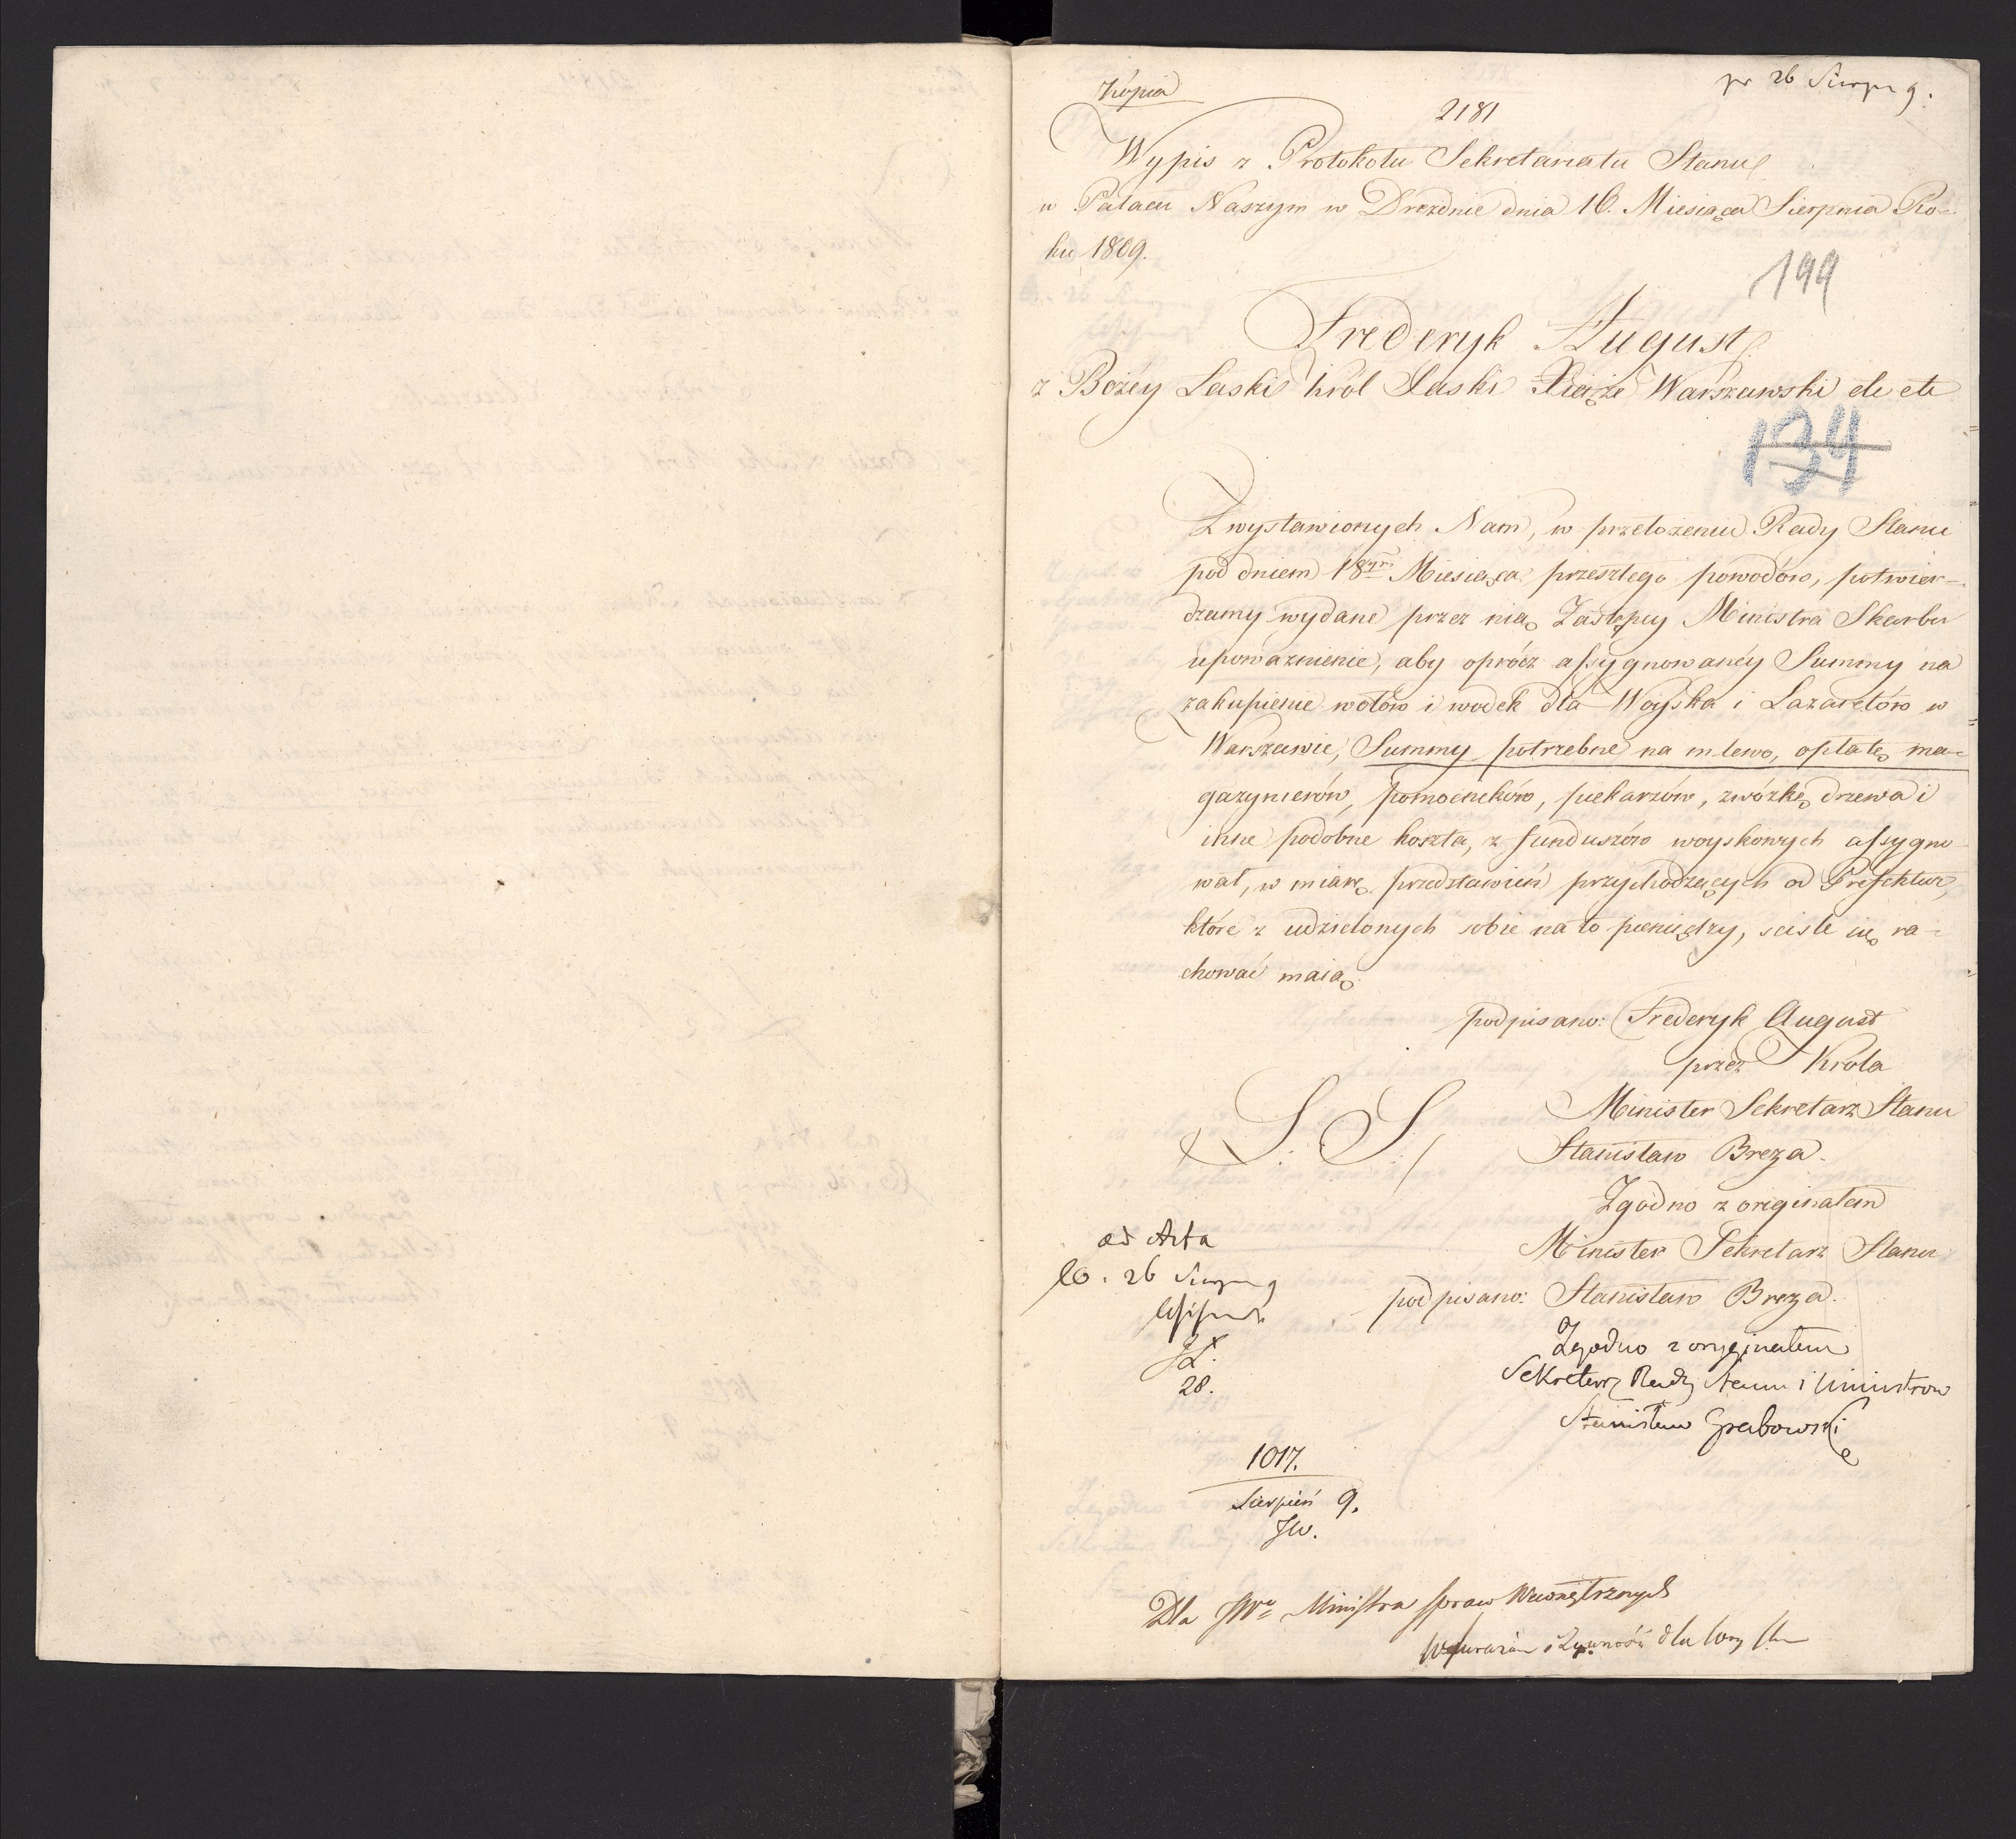 Kopia
pr 26 Sierpn 9.
2181
Wypis z Protokołu Sekretariatu Stanu
w Pałacu Naszym w Dreźdnie dnia 16. Miesiąca Sierpnia Ro-
ku 1809.
199
Frederyk August
z Bożey Łaski Król Saski Xiąże Warszawski etc etc
134
Z wystawionych Nam, w przełożeniu Rady Stanu
pod dniem 18tym Miesiąca przeszłego powodów, potwier-
dzamy wydane przez nią Zastępcy Ministra Skarbu
upoważnienie, aby oprócz assygnowanéy Summy na
zakupienie wołów i wodek dla Woyska i Lazaretów w
Warszawie, Summy potrzebne na mlewo, opłatę ma-
gazynierów, pomocników, piekarzów, zwózkę drzewa i
inne podobne koszta, z funduszów woyskowych assygno-
wał, w miarę przedstawień przychodzących od Prefektur,
które z udzielonych sobie na to pieniędzy, sciśle się ra-
chować maią
podpisano: Frederyk August
przez Króla
L. S.
Minister Sekretarz Stanu
Stanisław Breza.
Zgodno z originałem
Minister Sekretarz Stanu
podpisano: Stanisław Breza.
ad Acta
26 Sierpn 9
28.
Zgodno z oryginałem
Sekretarz Rady Stanu i Ministrow
Stanisław Grabowski
1017.
Sierpień 9.
JW.
Dla JWo Ministra Spraw Wewnętrznych